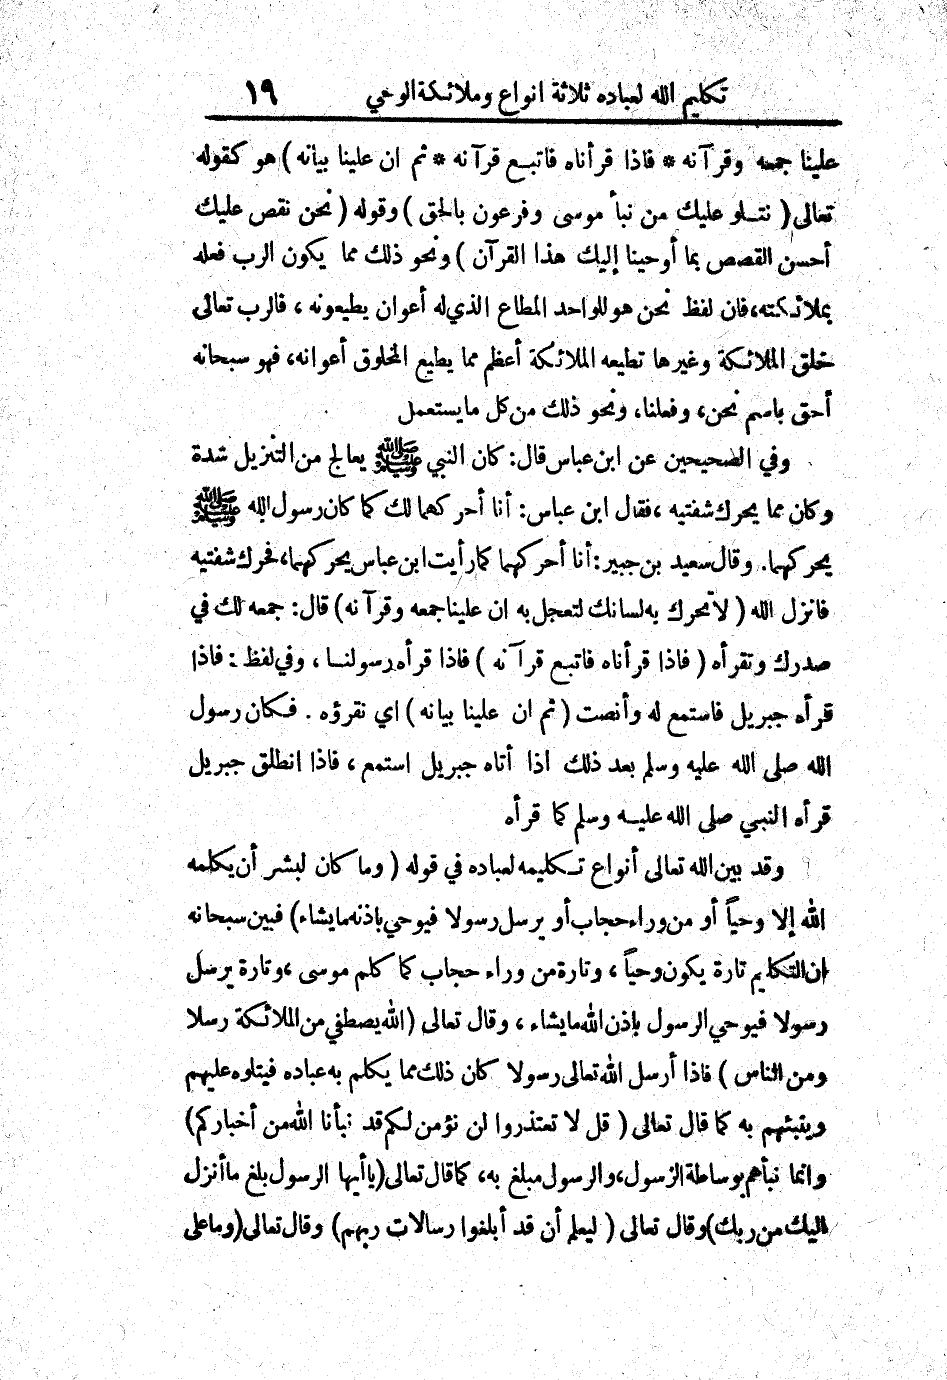 تكليم الله لعباده ثلاثة انواع وملائكة الوحي ١٩
علينا جمعه وقرآنه * فاذا قرأناه فاتبع قرآنه * ثم ان علينا بيانه ) هو كقوله
تعالى ( نتلو عليك من نبأ موسى وفرعون بالحق ) وقوله ( نحن نقص عليك
أحسن القصص بما أوحينا إليك هذا القرآن ) ونحو ذلك مما يكون الرب فعله
بملائكته، فان لفظ نحن هو للواحد المطاع الذي له أعوان يطيعونه ، فالرب تعالى
خلق الملائكة وغيرها تطيعه الملائكة أعظم مما يطيع المخلوق أعوانه، فهو سبحانه
أحق باسم نحن، وفعلنا، ونحو ذلك من كل ما يستعمل
وفي الصحيحين عن ابن عباس قال: كان النبي ﷺ يعالج من التنزيل شدة
وكان مما يحرك شفتيه ، فقال ابن عباس: أنا أحركهما لك كما كان رسول الله ﷺ
يحركهما. وقال سعيد بن جبير: أنا أحركهما كما رأيت ابن عباس يحركهما، فحرك شفتيه
فانزل الله ( لا تحرك به لسانك لتعجل به ان علينا جمعه وقرآنه) قال: جمعه لك في
صدرك وتقرأه ( فاذا قرأناه فاتبع قرآنه ) فاذا قرأه رسولنا ، وفي لفظ : فاذا
قرأه جبريل فاستمع له وأنصت ( ثم ان علينا بيانه ) اي نقرؤه . فكان رسول
الله صلى الله عليه وسلم بعد ذلك اذا أتاه جبريل استمع ، فاذا انطلق جبريل
قرأه النبي صلى الله عليه وسلم كما قرأه
وقد بين الله تعالى أنواع تكليمه لعباده في قوله ( وما كان لبشر أن يكلمه
الله إلا وحياً أو من وراء حجاب أو يرسل رسولا فيوحي باذنه ما يشاء) فبين سبحانه
ان التكليم تارة يكون وحياً ، وتارة من وراء حجاب كما كلم موسى ، وتارة يرسل
رسولا فيوحي الرسول بإذن الله ما يشاء ، وقال تعالى (الله يصطفي من الملائكة رسلا
ومن الناس ) فاذا أرسل الله تعالى رسولا كان ذلك مما يكلم به عباده فيتلوه عليهم
وينبئهم به كما قال تعالى ( قل لا تعتذروا لن نؤمن لكم قد نبأنا الله من أخباركم)
وانما نبأهم بوساطة الرسول، والرسول مبلغ به، كما قال تعالى (يا أيها الرسول بلغ ما أنزل
اليك من ربك) وقال تعالى ( ليعلم أن قد أبلغوا رسالات ربهم) وقال تعالى (وما على